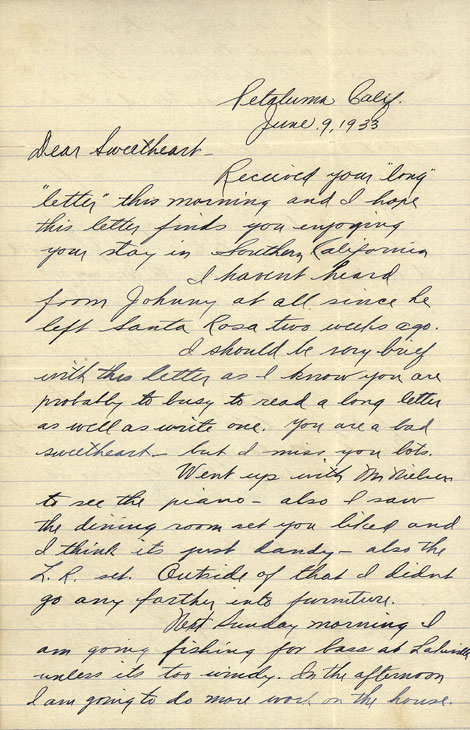 Petaluma Calif.
June. 9, 1933
Dear Sweetheart -
Received your "long"
"letter" this morning and I hope
this letter finds you enjoying
your stay in Southern California
I havent heard
from Johnny at all since he
left Santa Rosa two weeks ago.
I should be very brief
with this letter as I know you are
probably to busy to read a long letter
as well as write one. You are a bad
sweetheart - but I miss you lots.
Went up with Mr Nielsen
to see the piano - also I saw
the dining room set you liked and
I think its just dandy - also the
L. R. set. Outside of that I didnt
go any farther into furniture.
Next Sunday morning I
am going fishing for bass at Lakeville
unless its too windy. In the afternoon
I am going to do more work on the house.